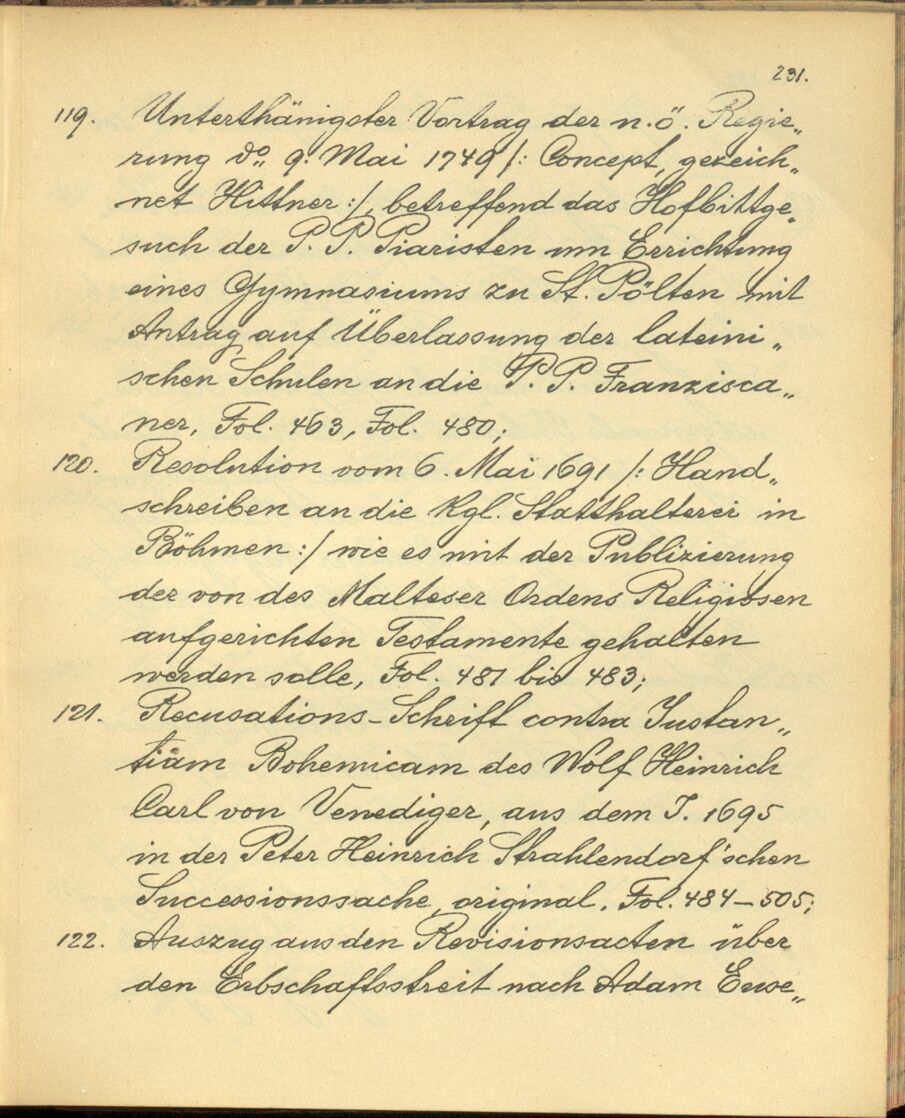 231.
119. Unterthänigster Vortrag der n.ö. Regie„
rung do„ 9. Mai 1749 /: Concept, gezeich„
net Hittner :/, betreffend das Hofbittge„
such der P. P. Piaristen um Errichtung
eines Gymnasiums zu St. Pölten mit
Antrag auf Überlassung der lateini„
schen Schulen an die P. P. Franzisca„
ner, Fol. 463, Fol. 480;
120. Resolution vom 6. Mai 1691 /: Hand„
schreiben an die Kgl. Statthalterei in
Böhmen :/ wie es mit der Publizierung
der von des Malteser Ordens Religiosen
aufgerichten Testamente gehalten
werden solle, Fol. 481 bis 483;
121. Recusations-Schrift contra Instan„
tiam Bohemicam des Wolf Heinrich
Carl von Venediger, aus dem J. 1695
in der Peter Heinrich Strahlendorf'schen
Successionssache, original, Fol. 484–505;
122. Auszug aus den Revisionsacten über
den Erbschaftsstreit nach Adam Euse„